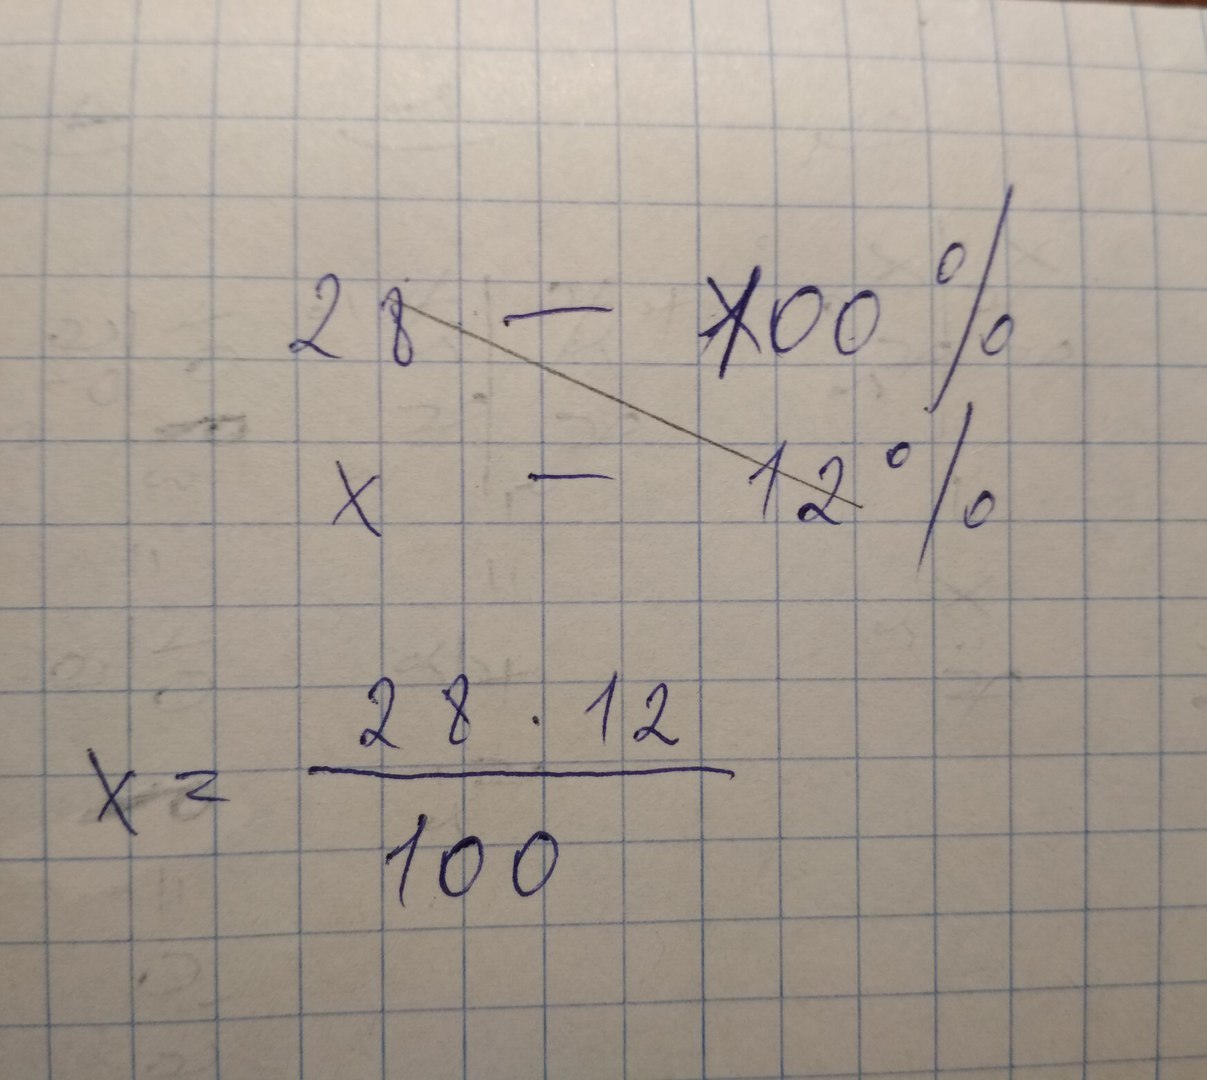 28 — 100%
x — 12%
28 · 12
x = —
100